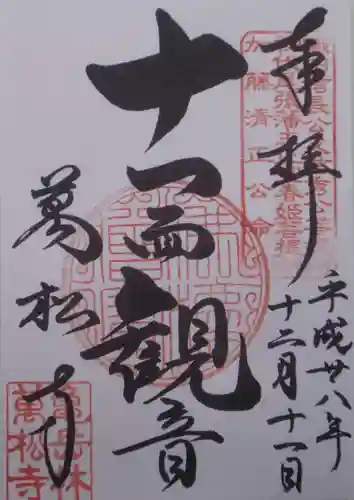 奉拝
平成廿八年
十二月十一日
十一面観音
萬松寺
加藤清正公
亀岳林
萬松寺